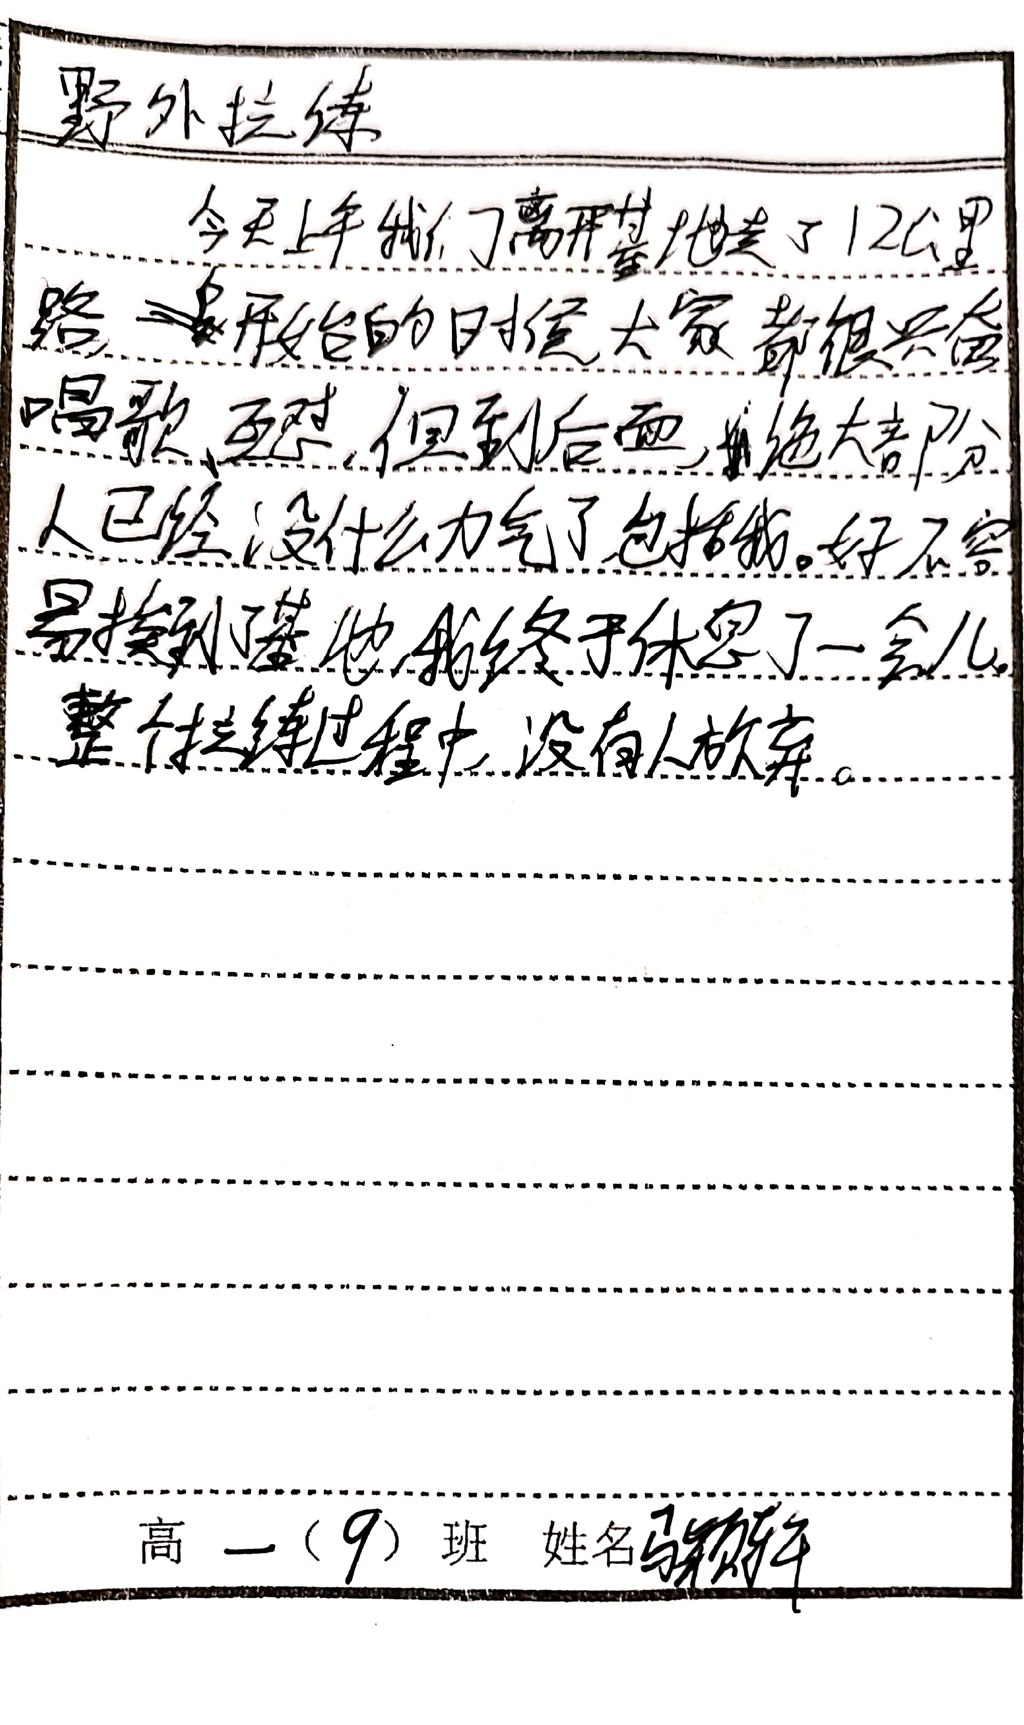 野外拉练
今天上午我们离开基地走了12公里
路,一开始的时候,大家都很兴奋
唱歌、互怼,但到后面,绝大部分
人已经没什么力气了,包括我。好不容
易挨到了基地,我终于休息了一会儿。
整个拉练过程中,没有人放弃。
高一(9)班 姓名马颖轩